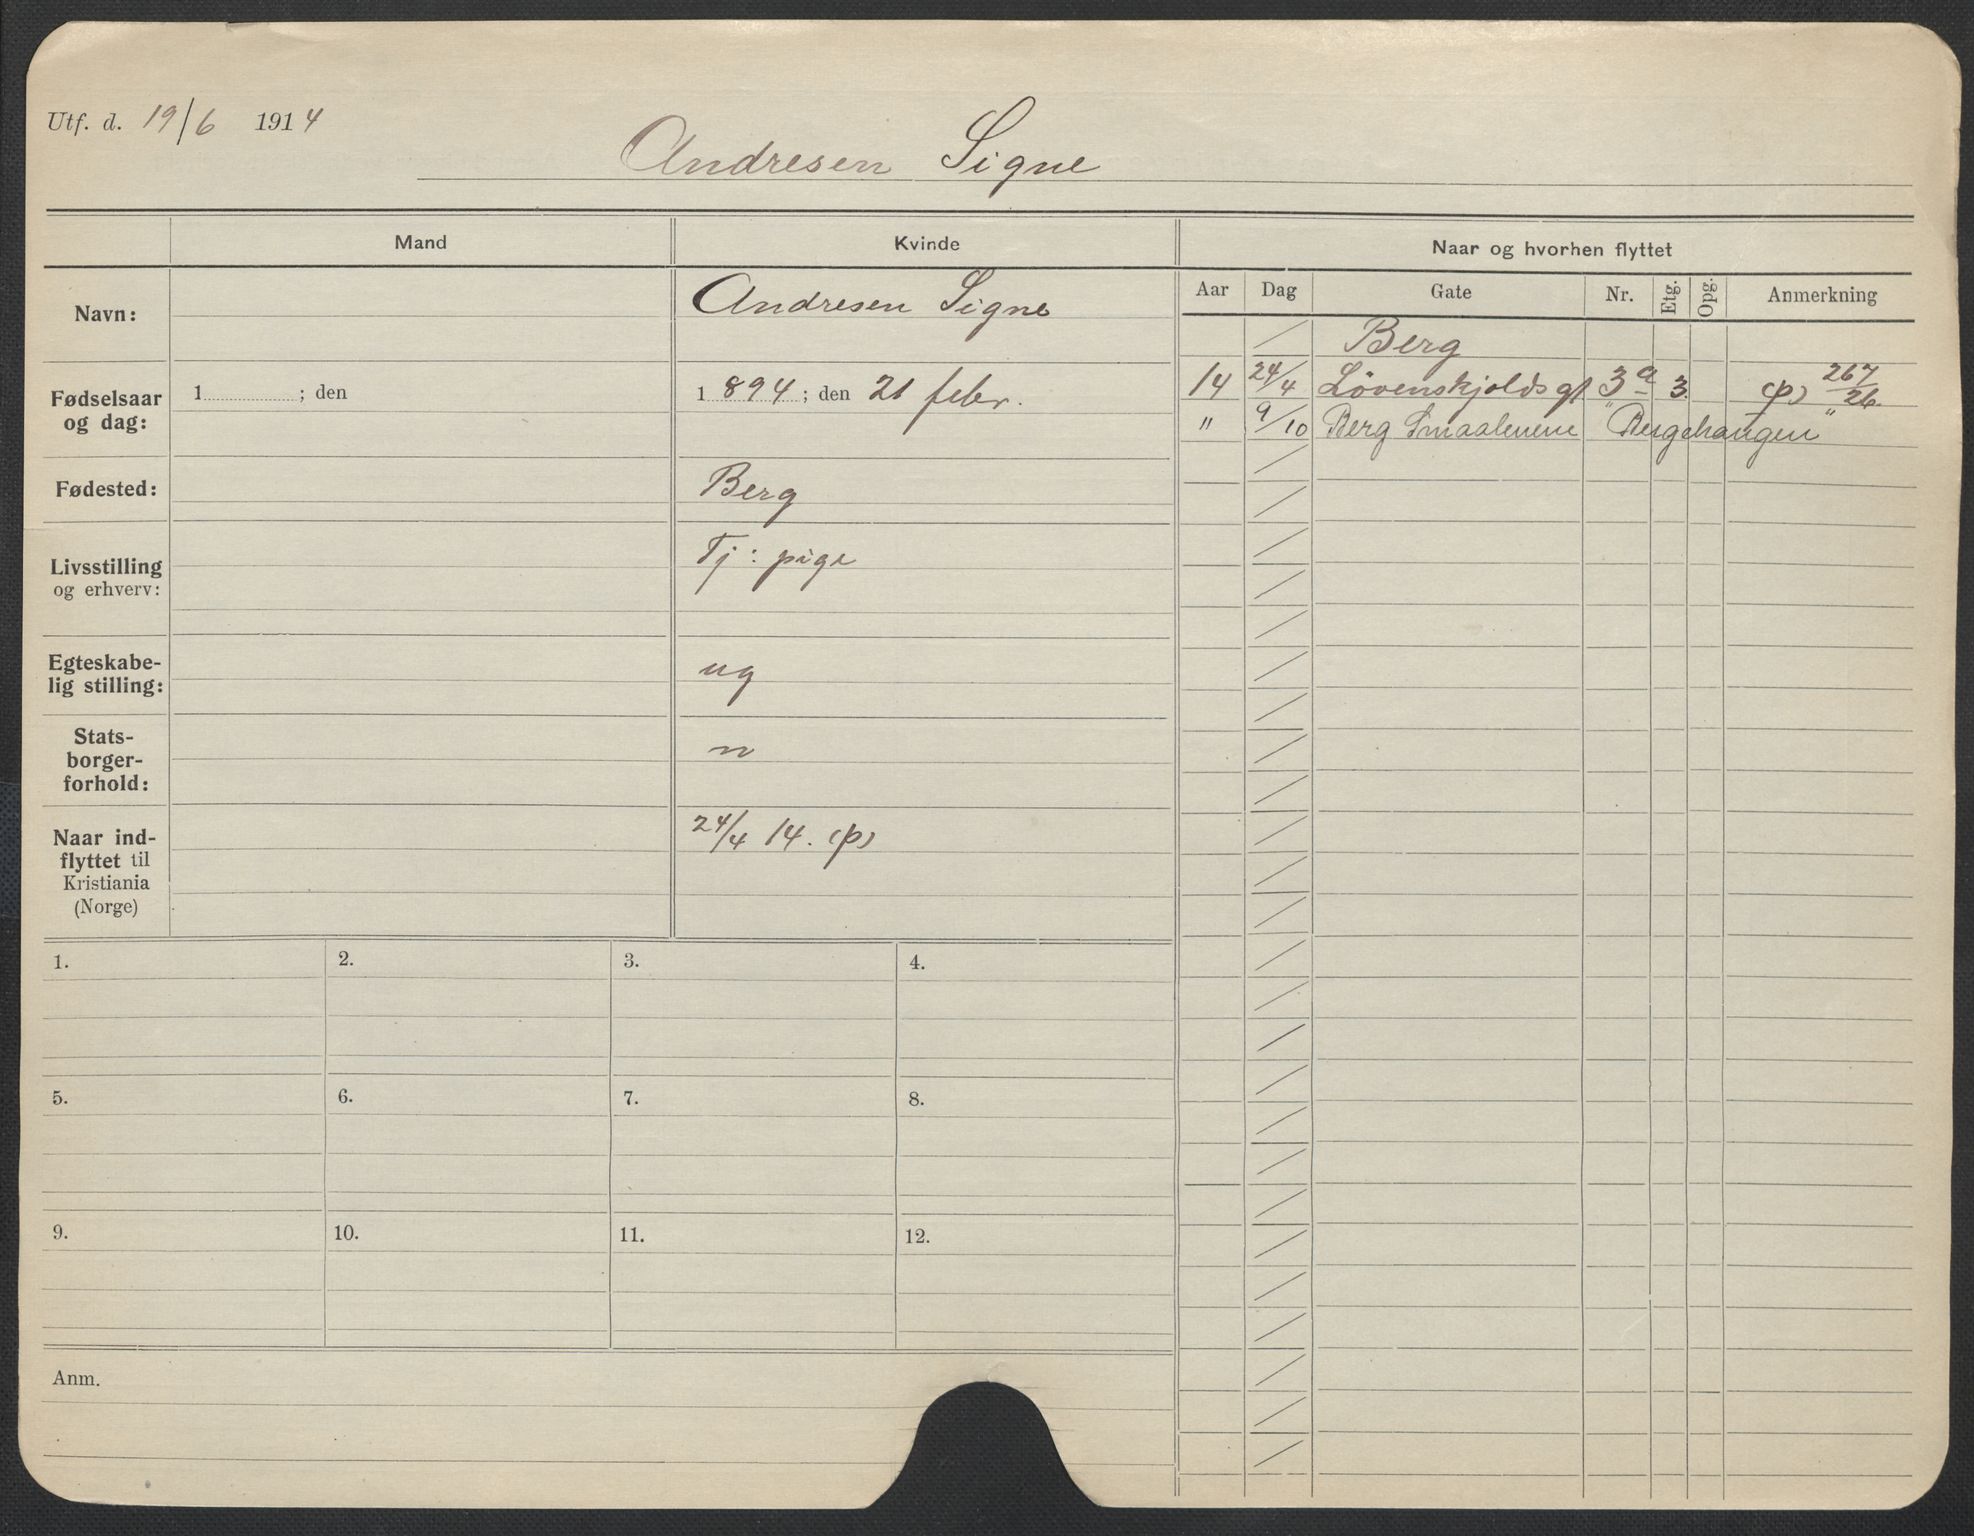 Utf. d. 19/6 1914
Andresen Signe
Mand
Kvinde
Naar og hvorhen flyttet
Aar Dag Gate Nr. Etg. Opg. Anmerkning
Navn:
Andresen Signe
Berg
Fødselsaar og dag:
1 ; den
1894 ; den 21 febr.
14 24/4 Løvenskjolds gt 3a 3. (p) 267/26.
" 9/10 Berg Smaalenene
Fødested:
Berg
Livsstilling
og erhverv:
Tj: pige
Egteskabe-
lig stilling:
ug
Stats-
borger-
forhold:
n
Naar ind-
flyttet til
Kristiania
(Norge)
24/4 14. (p)
1. 2. 3. 4.
5. 6. 7. 8.
9. 10. 11. 12.
Anm.